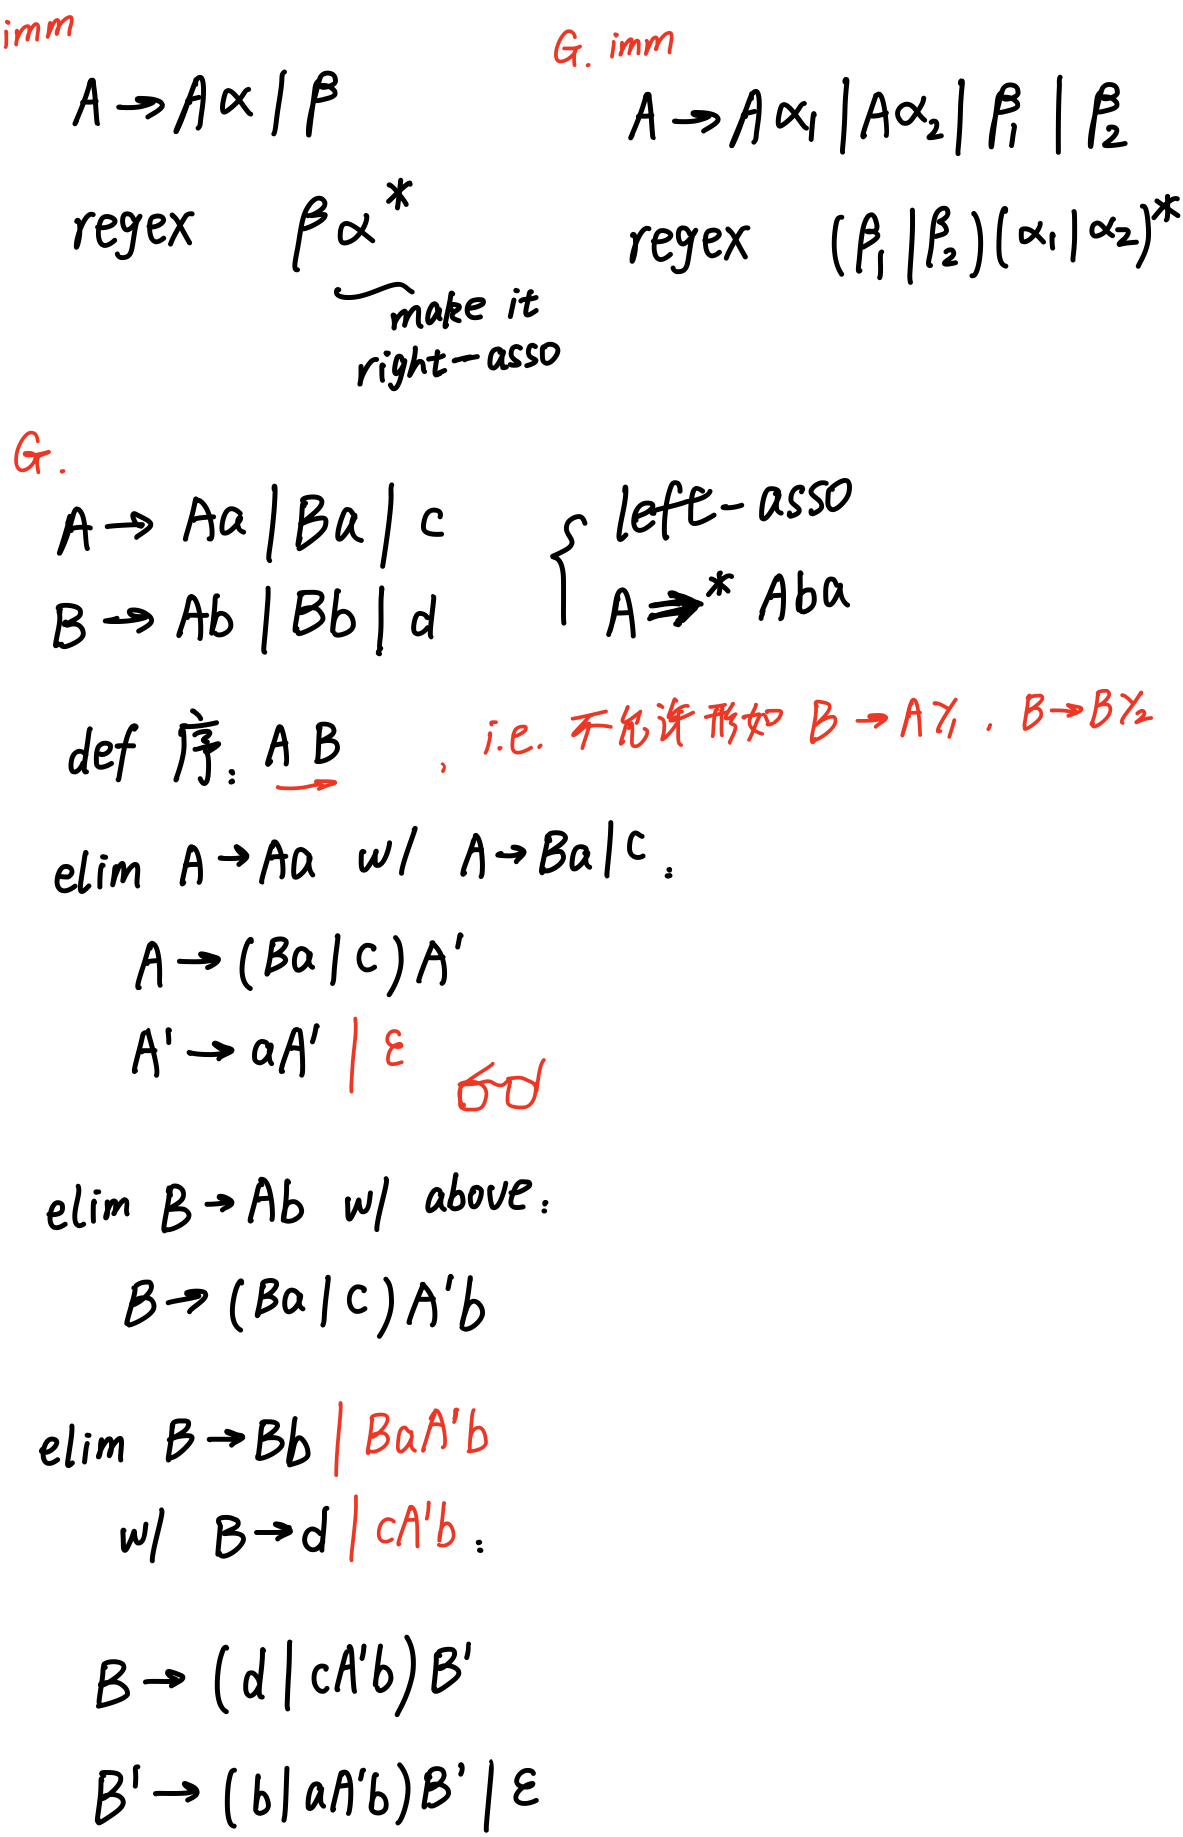 imm
A → Aα | β
regex βα*
make it
right-asso
G. imm
A → Aα₁ | Aα₂ | β₁ | β₂
regex (β₁ | β₂)(α₁ | α₂)*
G.
A → Aa | Ba | c
B → Ab | Bb | d
{ left-asso
A ⇒* Aba
def 序: A B , i.e. 不允许形如 B → Aγ₁ , B → Bγ₂
elim A → Aa w/ A → Ba | c :
A → (Ba | c) A'
A' → aA' | ε
elim B → Ab w/ above:
B → (Ba | c) A'b
elim B → Bb | BaA'b
w/ B → d | cA'b :
B → (d | cA'b) B'
B' → (b | aA'b) B' | ε